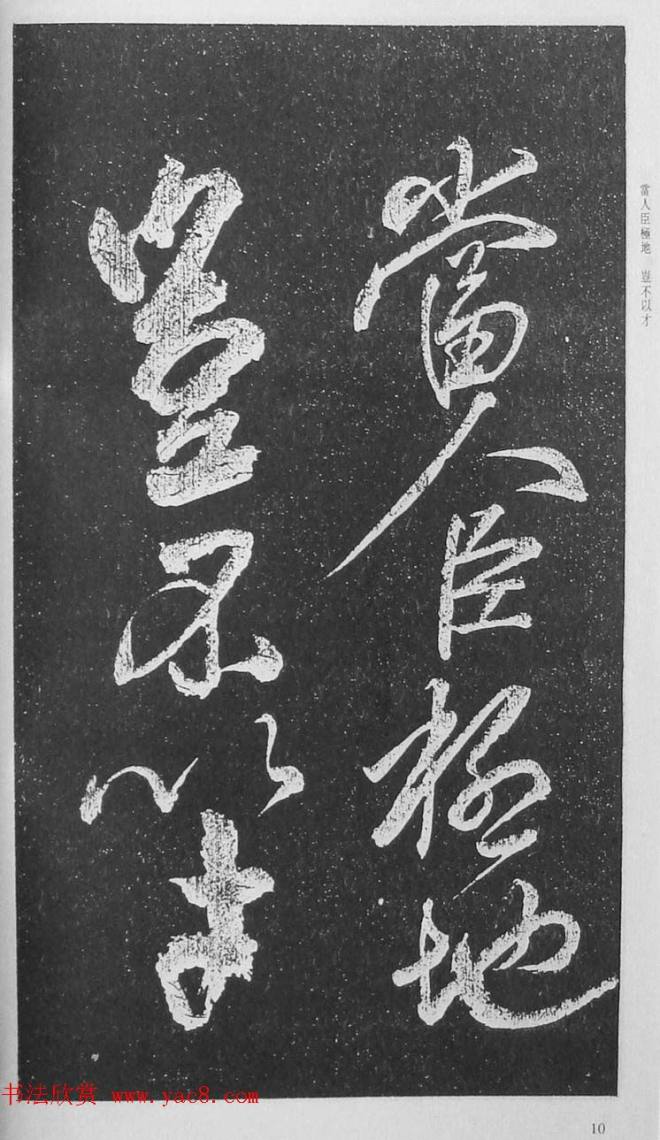 當人臣極地
豈不以才
當人臣極地 豈不以才
书法欣赏 www.yac8.com
10